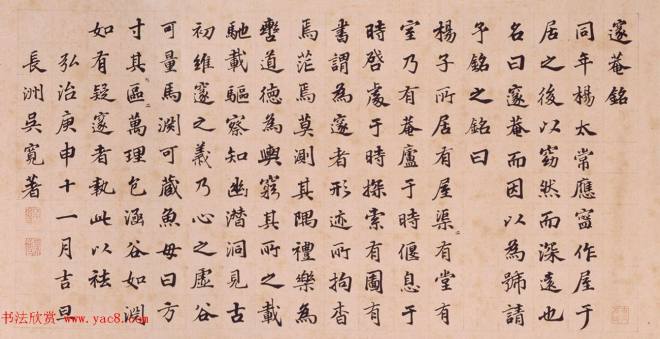 邃菴銘
同年楊太常應寧作屋于
居之後以窈然而深遠也
名曰邃菴而因以為號請
予銘之銘曰
楊子所居有屋渠有堂有
室乃有菴廬于時偃息于
時啓處于時探索有圖有
書謂為邃者形迹所拘杳
焉茫焉莫測其隅禮樂為
轡道德為輿窮其所之載
馳載驅察知幽潛洞見古
初維邃之義乃心之虛谷
可量馬淵可蔵魚毋曰方
寸其區萬理包涵谷如淵
如有疑邃者執此以祛
弘治庚申十一月吉旦
長洲吳寬著
书法欣赏 www.yac8.com